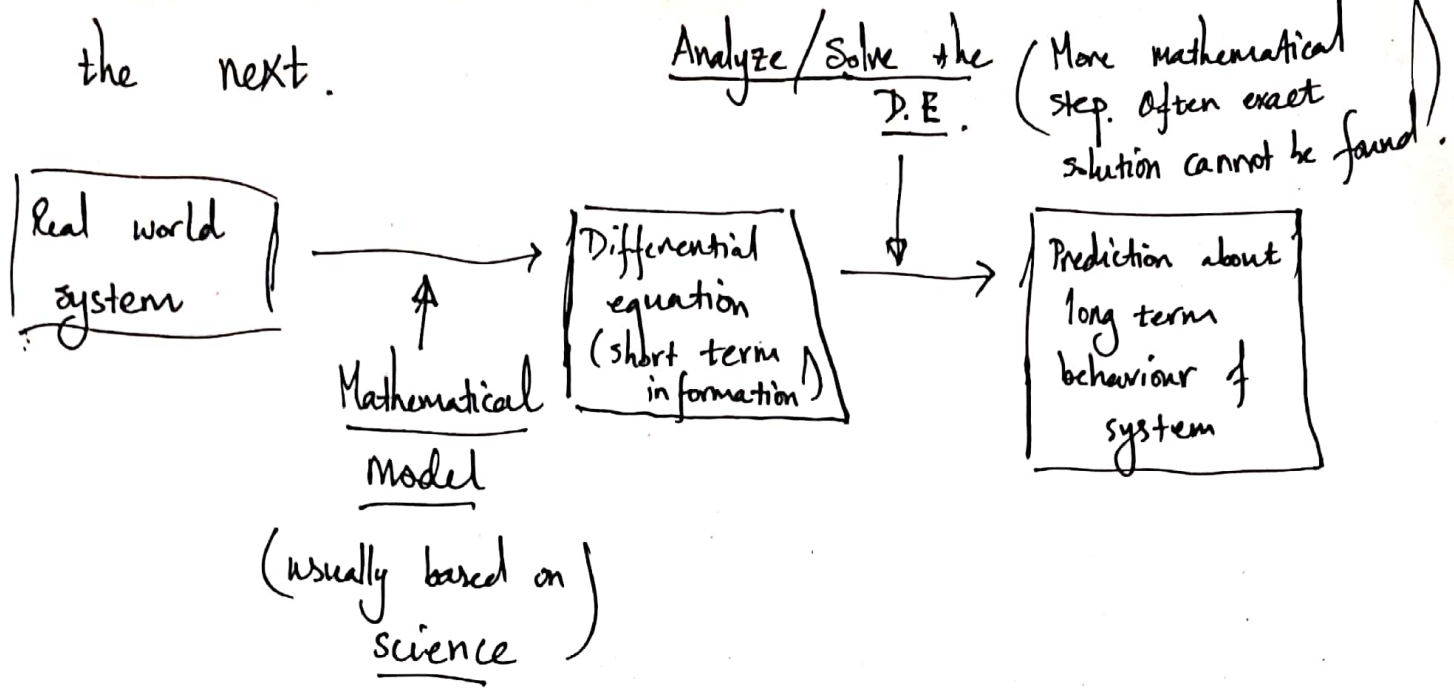 the next.
Analyze/Solve the
D.E.
(More mathematical
step. Often exact
solution cannot be found).
Real world
system
Mathematical
Model
(usually based on
science)
Differential
equation
(short term
information)
Prediction about
long term
behaviour of
system